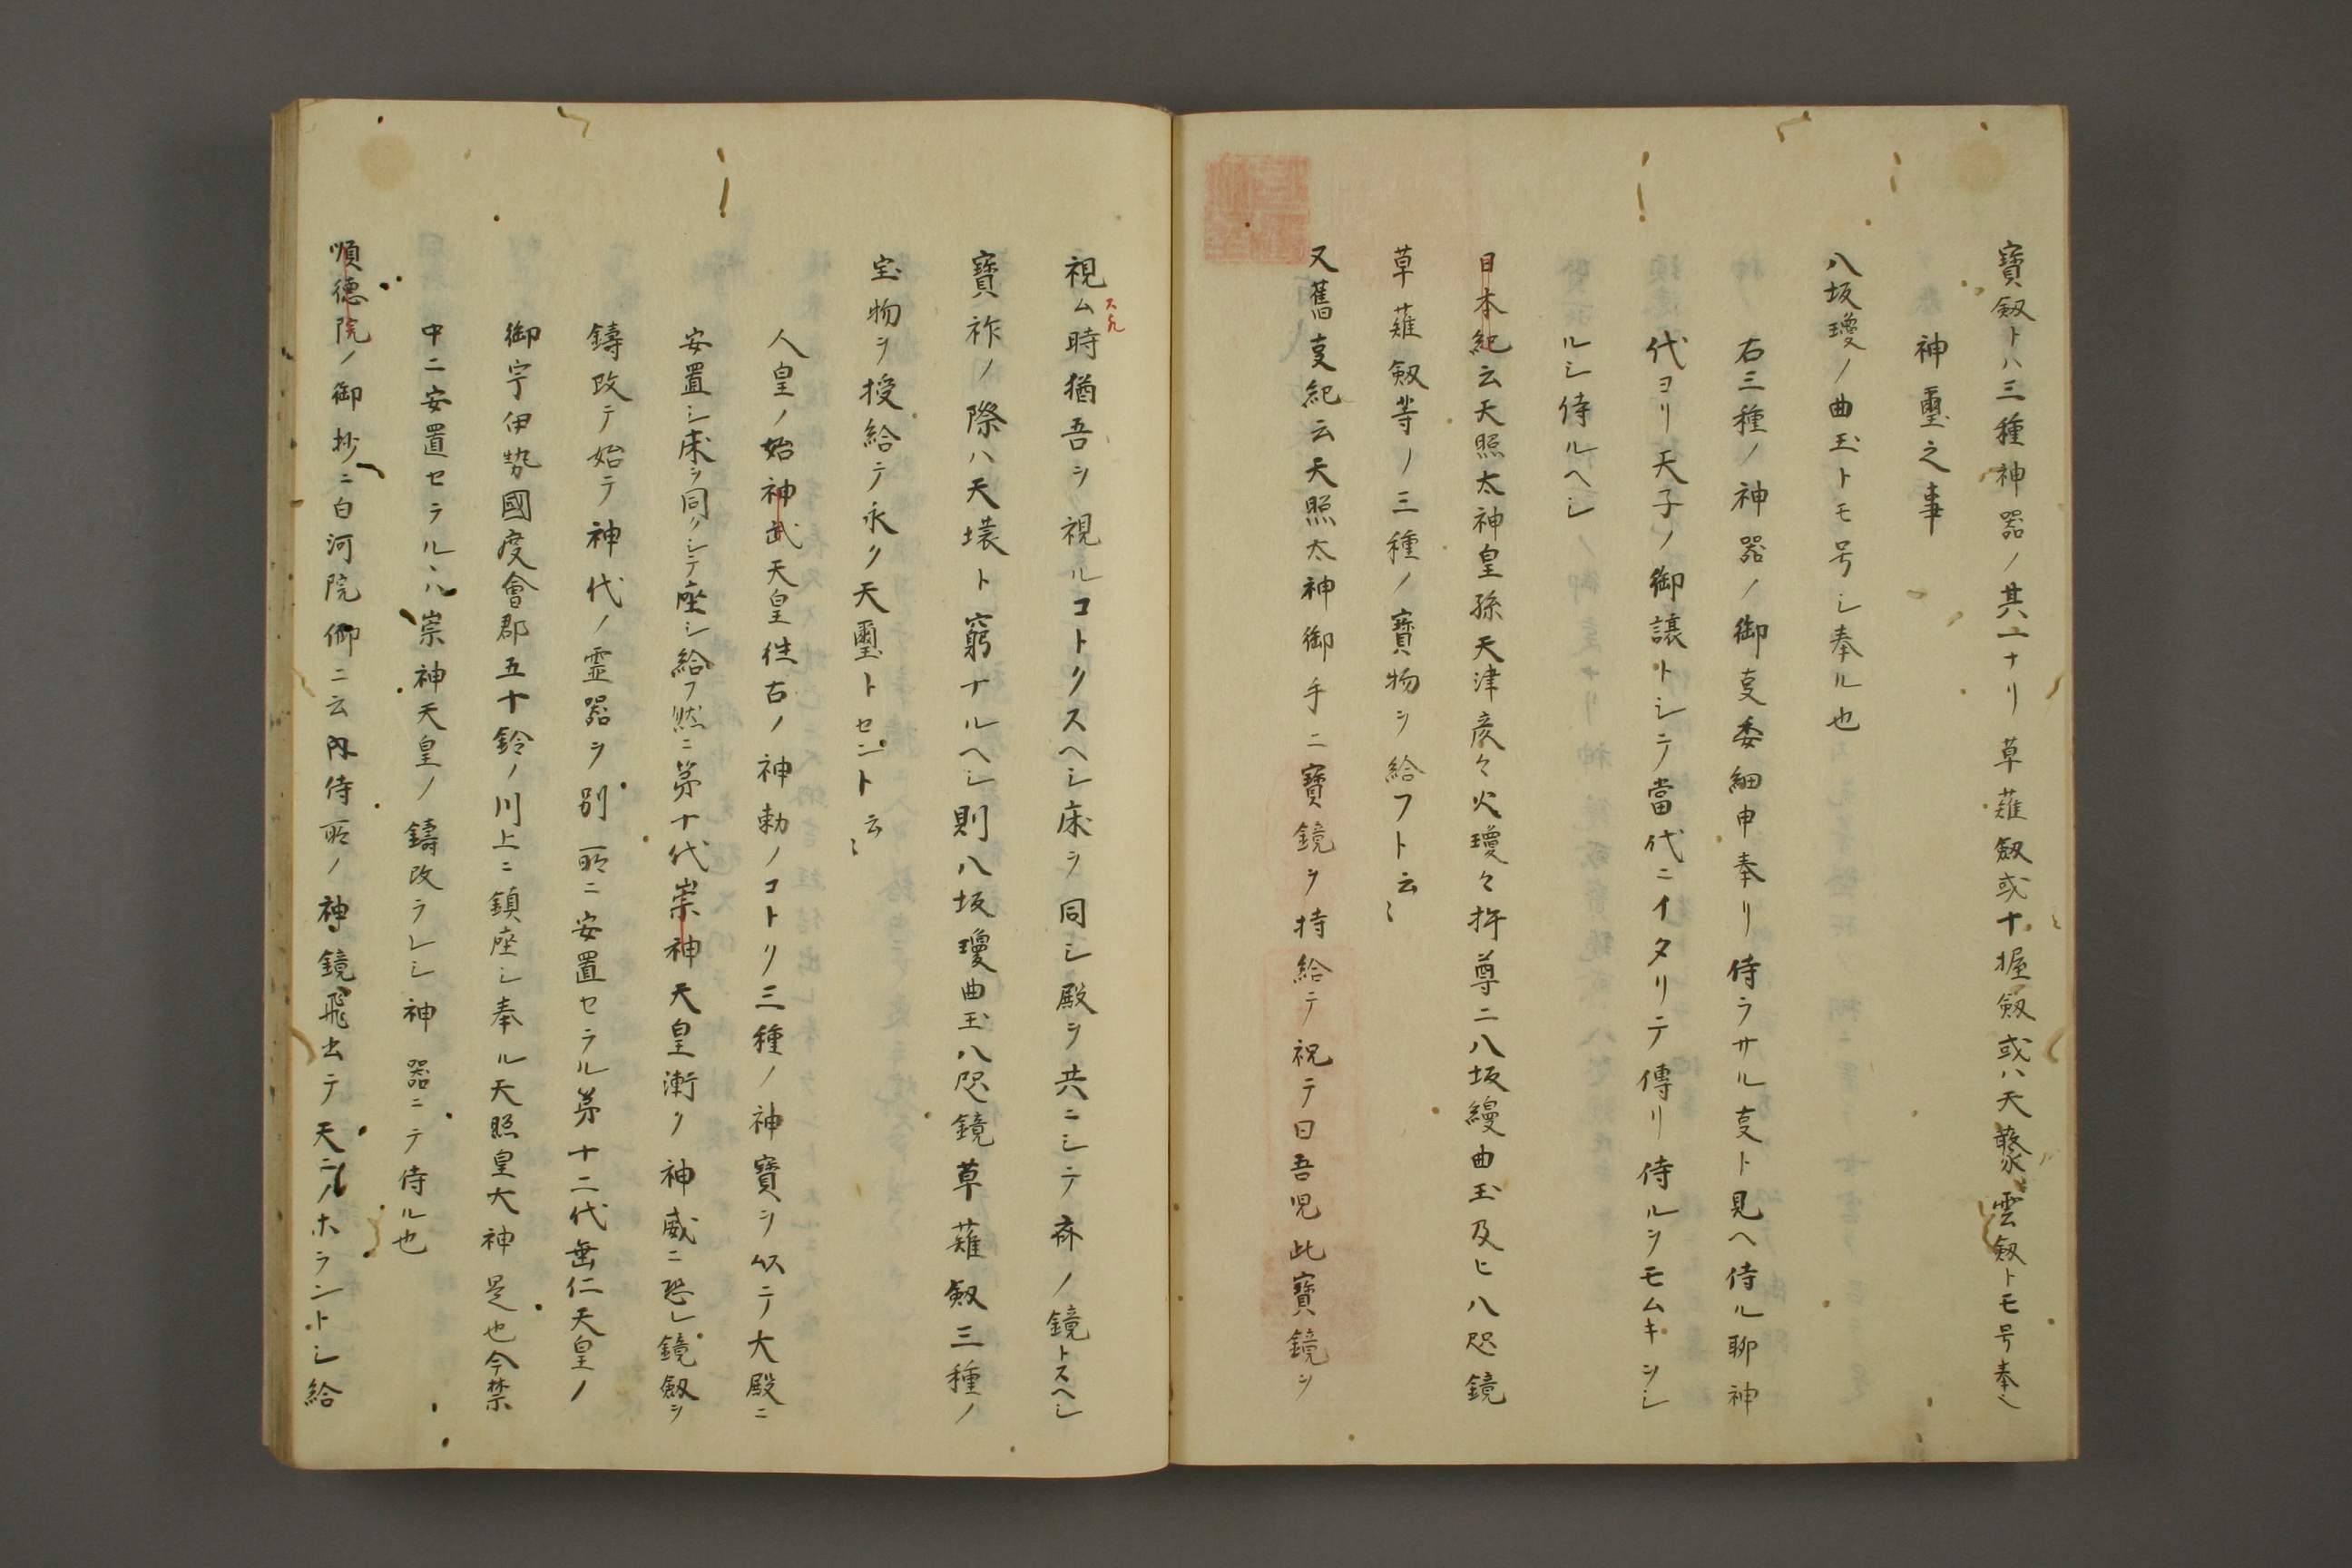 寶劔トハ三種神器ノ其一ナリ草薙劔或十握劔或ハ天藂雲劔トモ号奉ル
神璽之事
八坂瓊ノ曲玉トモ号シ奉ル也
右三種ノ神器ノ御叓委細申奉リ侍ラサル叓ト見ヘ侍ル聊神
代ヨリ天子ノ御譲トシテ當代ニイタリテ傳リ侍ルヲモムキシルシ侍ルヘシ
日本紀云天照太神皇孫天津彦々火瓊々杵尊ニ八坂縵曲玉及ヒ八咫鏡
草薙劔等ノ三種ノ寶物ヲ給フト云〻
又舊叓紀云天照太神御手ニ寶鏡ヲ持給テ祝テ曰吾児此寶鏡ヲ
視ム時猶吾ヲ視ルコトクスヘシ床ヲ同シ殿ヲ共ニシテ斎ノ鏡トスヘシ
寶祚ノ隆ハ天壌ト窮ナルヘシ則八坂瓊曲玉八咫鏡草薙劔三種ノ
宝物ヲ授給テ永ク天璽トセント云〻
人皇ノ始神武天皇徃古ノ神勅ノコトク三種ノ神寶ヲ以テ大殿ニ
安置シ床ヲ同クシテ座シ給フ然ニ第十代崇神天皇漸ク神威ニ恐レ鏡劔ヲ
鑄改テ始テ神代ノ霊器ヲ別所ニ安置セラル第十二代垂仁天皇ノ
御宇伊勢國度會郡五十鈴ノ川上ニ鎮座シ奉ル天照皇大神是也今禁
中ニ安置セラルヽハ崇神天皇ノ鑄改ラレシ神器ニテ侍ル也
順徳院ノ御抄ニ白河院仰ニ云内侍所ノ神鏡飛出テ天ニノホラントシ給